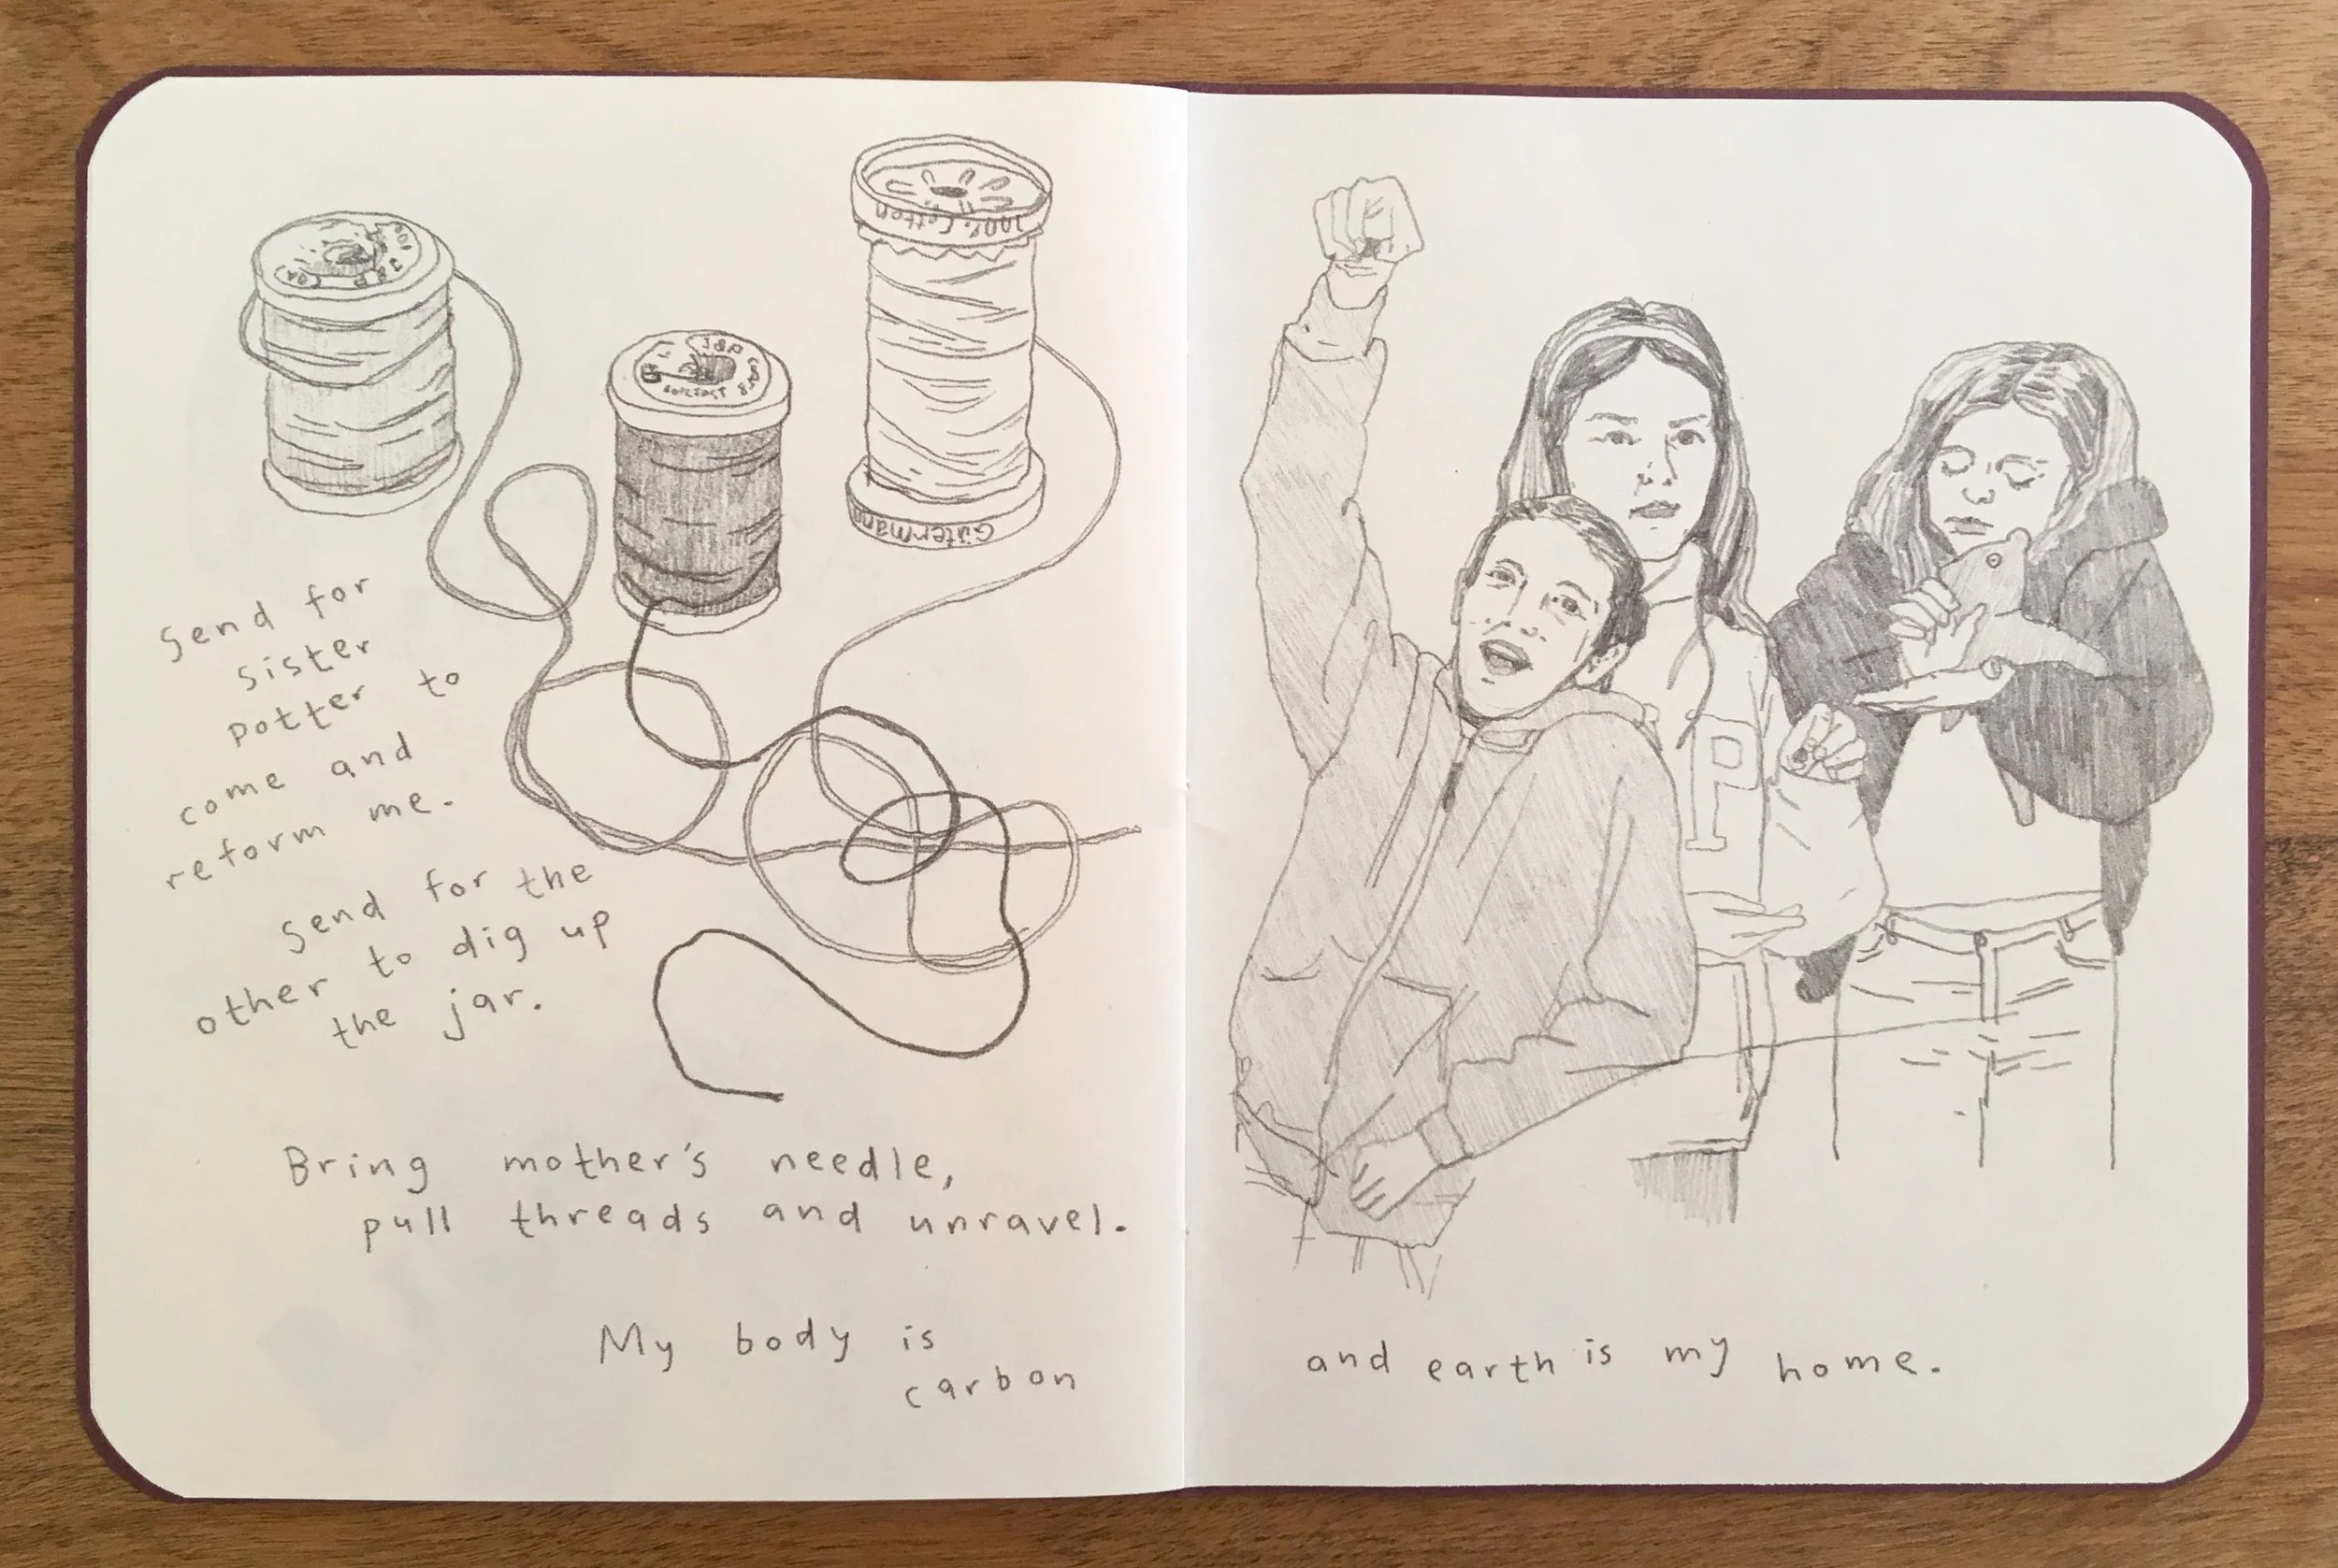 100% Cotton
J&P COATS
Gütermann
Send for
sister
potter to
come and
reform me.
Send for the
other to dig up
the jar.
Bring mother's needle,
pull threads and unravel.
My body is
carbon
P
and earth is my home.